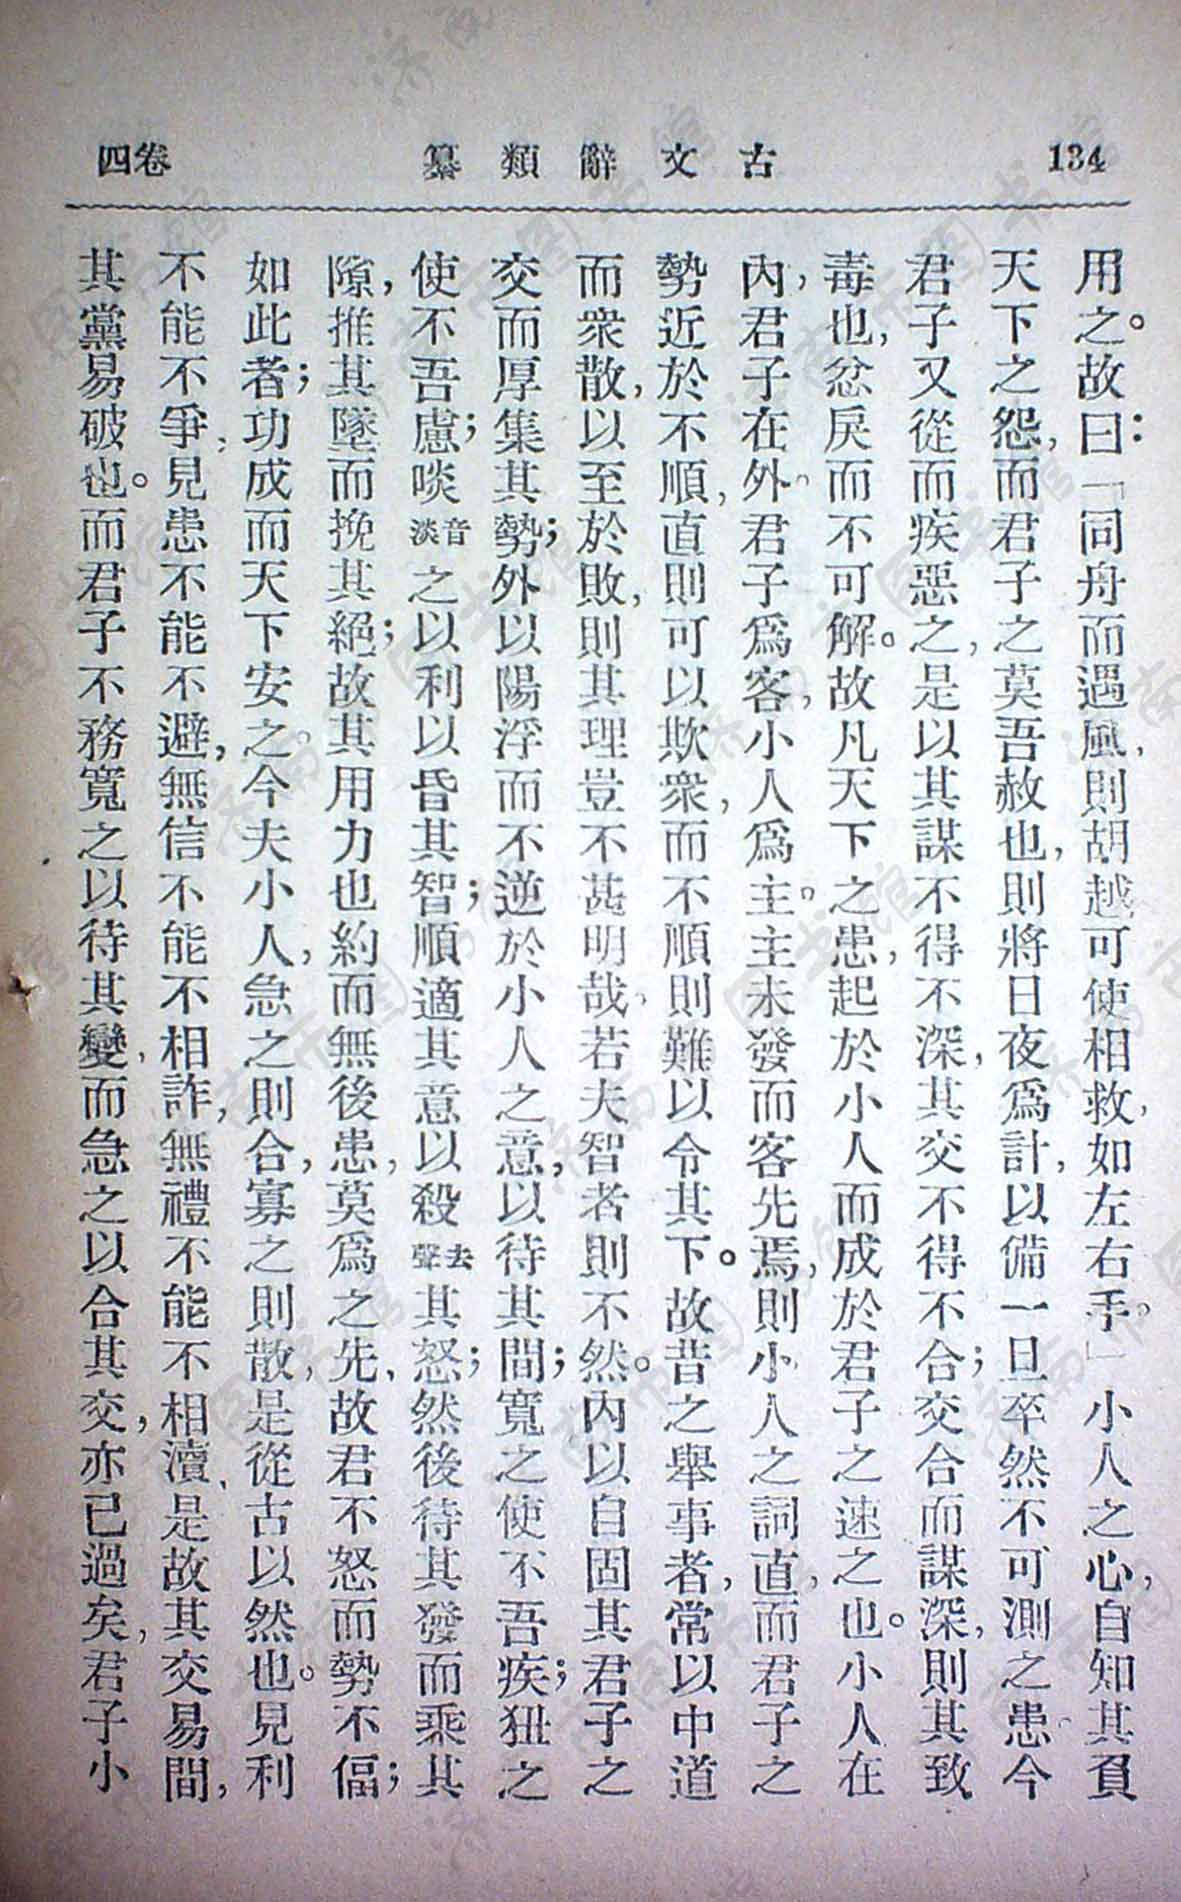 134
古文辭類纂
卷四
用之。故曰：「同舟而遇風，則胡越可使相救，如左右手。」小人之心，自知其負
天下之怨，而君子之莫吾赦也，則將日夜爲計，以備一旦卒然不可測之患。今
君子又從而疾惡之，是以其謀不得不深，其交不得不合；交合而謀深，則其致
毒也，忿戾而不可解。故凡天下之患，起於小人而成於君子之速之也。小人在
內，君子在外。君子爲客，小人爲主。主未發而客先焉，則小人之詞直，而君子之
勢近於不順，直則可以欺衆，而不順則難以令其下。故昔之舉事者，常以中道
而衆散，以至於敗，則其理豈不甚明哉，若夫智者則不然。內以自固其君子之
交而厚集其勢；外以陽浮而不逆於小人之意，以待其間；寬之使不吾疾；狃之
使不吾慮；啖音淡之以利以昏其智；順適其意以殺去聲其怒；然後待其發而乘其
隙，推其墜而挽其絕；故其用力也約而無後患，莫爲之先，故君不怒而勢不偪；
如此者；功成而天下安之。今夫小人，急之則合，寡之則散，是從古以然也。見利
不能不爭，見患不能不避，無信不能不相詐，無禮不能不相瀆，是故其交易間，
其黨易破也。而君子不務寬之以待其變，而急之以合其交，亦已過矣，君子小